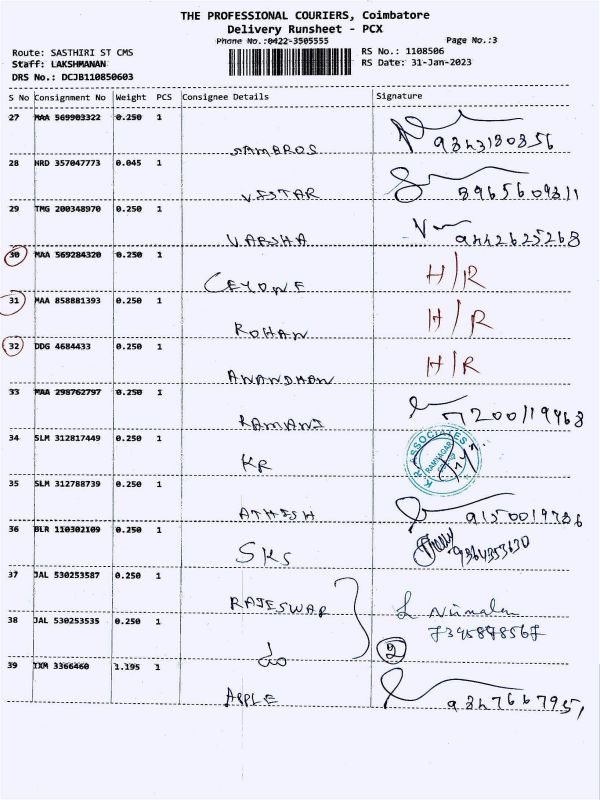 THE PROFESSIONAL COURIERS, Coimbatore
Delivery Runsheet - PCX
Phone No.:0422-3505555 Page No.:3
Route: SASTHIRI ST CMS RS No.: 1108506
Staff: LAKSHMANAN RS Date: 31-Jan-2023
DRS No.: DCJB110850603
S No Consignment No Weight PCS Consignee Details Signature
27 MAA 569903322 0.250 1
SAMBROS 9843180856
28 NRD 357047773 0.045 1
VISTAR
29 TMG 200348970 0.250 1
VARSHA 9442625268
30 MAA 569284320 0.250 1
CEYONE H/R
31 MAA 858881393 0.250 1
ROHAN H/R
32 DDG 4684433 0.250 1
ANANDHAN H/R
33 MAA 298762797 0.250 1
RAMANI 7200119468
34 SLM 312817449 0.250 1
KR K.R. ASSOCIATES RAMNAGAR
35 SLM 312788739 0.250 1
ATHISH 9150019786
36 BLR 110302109 0.250 1
SKS 9364353630
37 JAL 530253587 0.250 1
RAJESWAR L Nirmala
38 JAL 530253535 0.250 1 7395878567
do 2
39 IXM 3366460 1.195 1
APPLE 9347667951